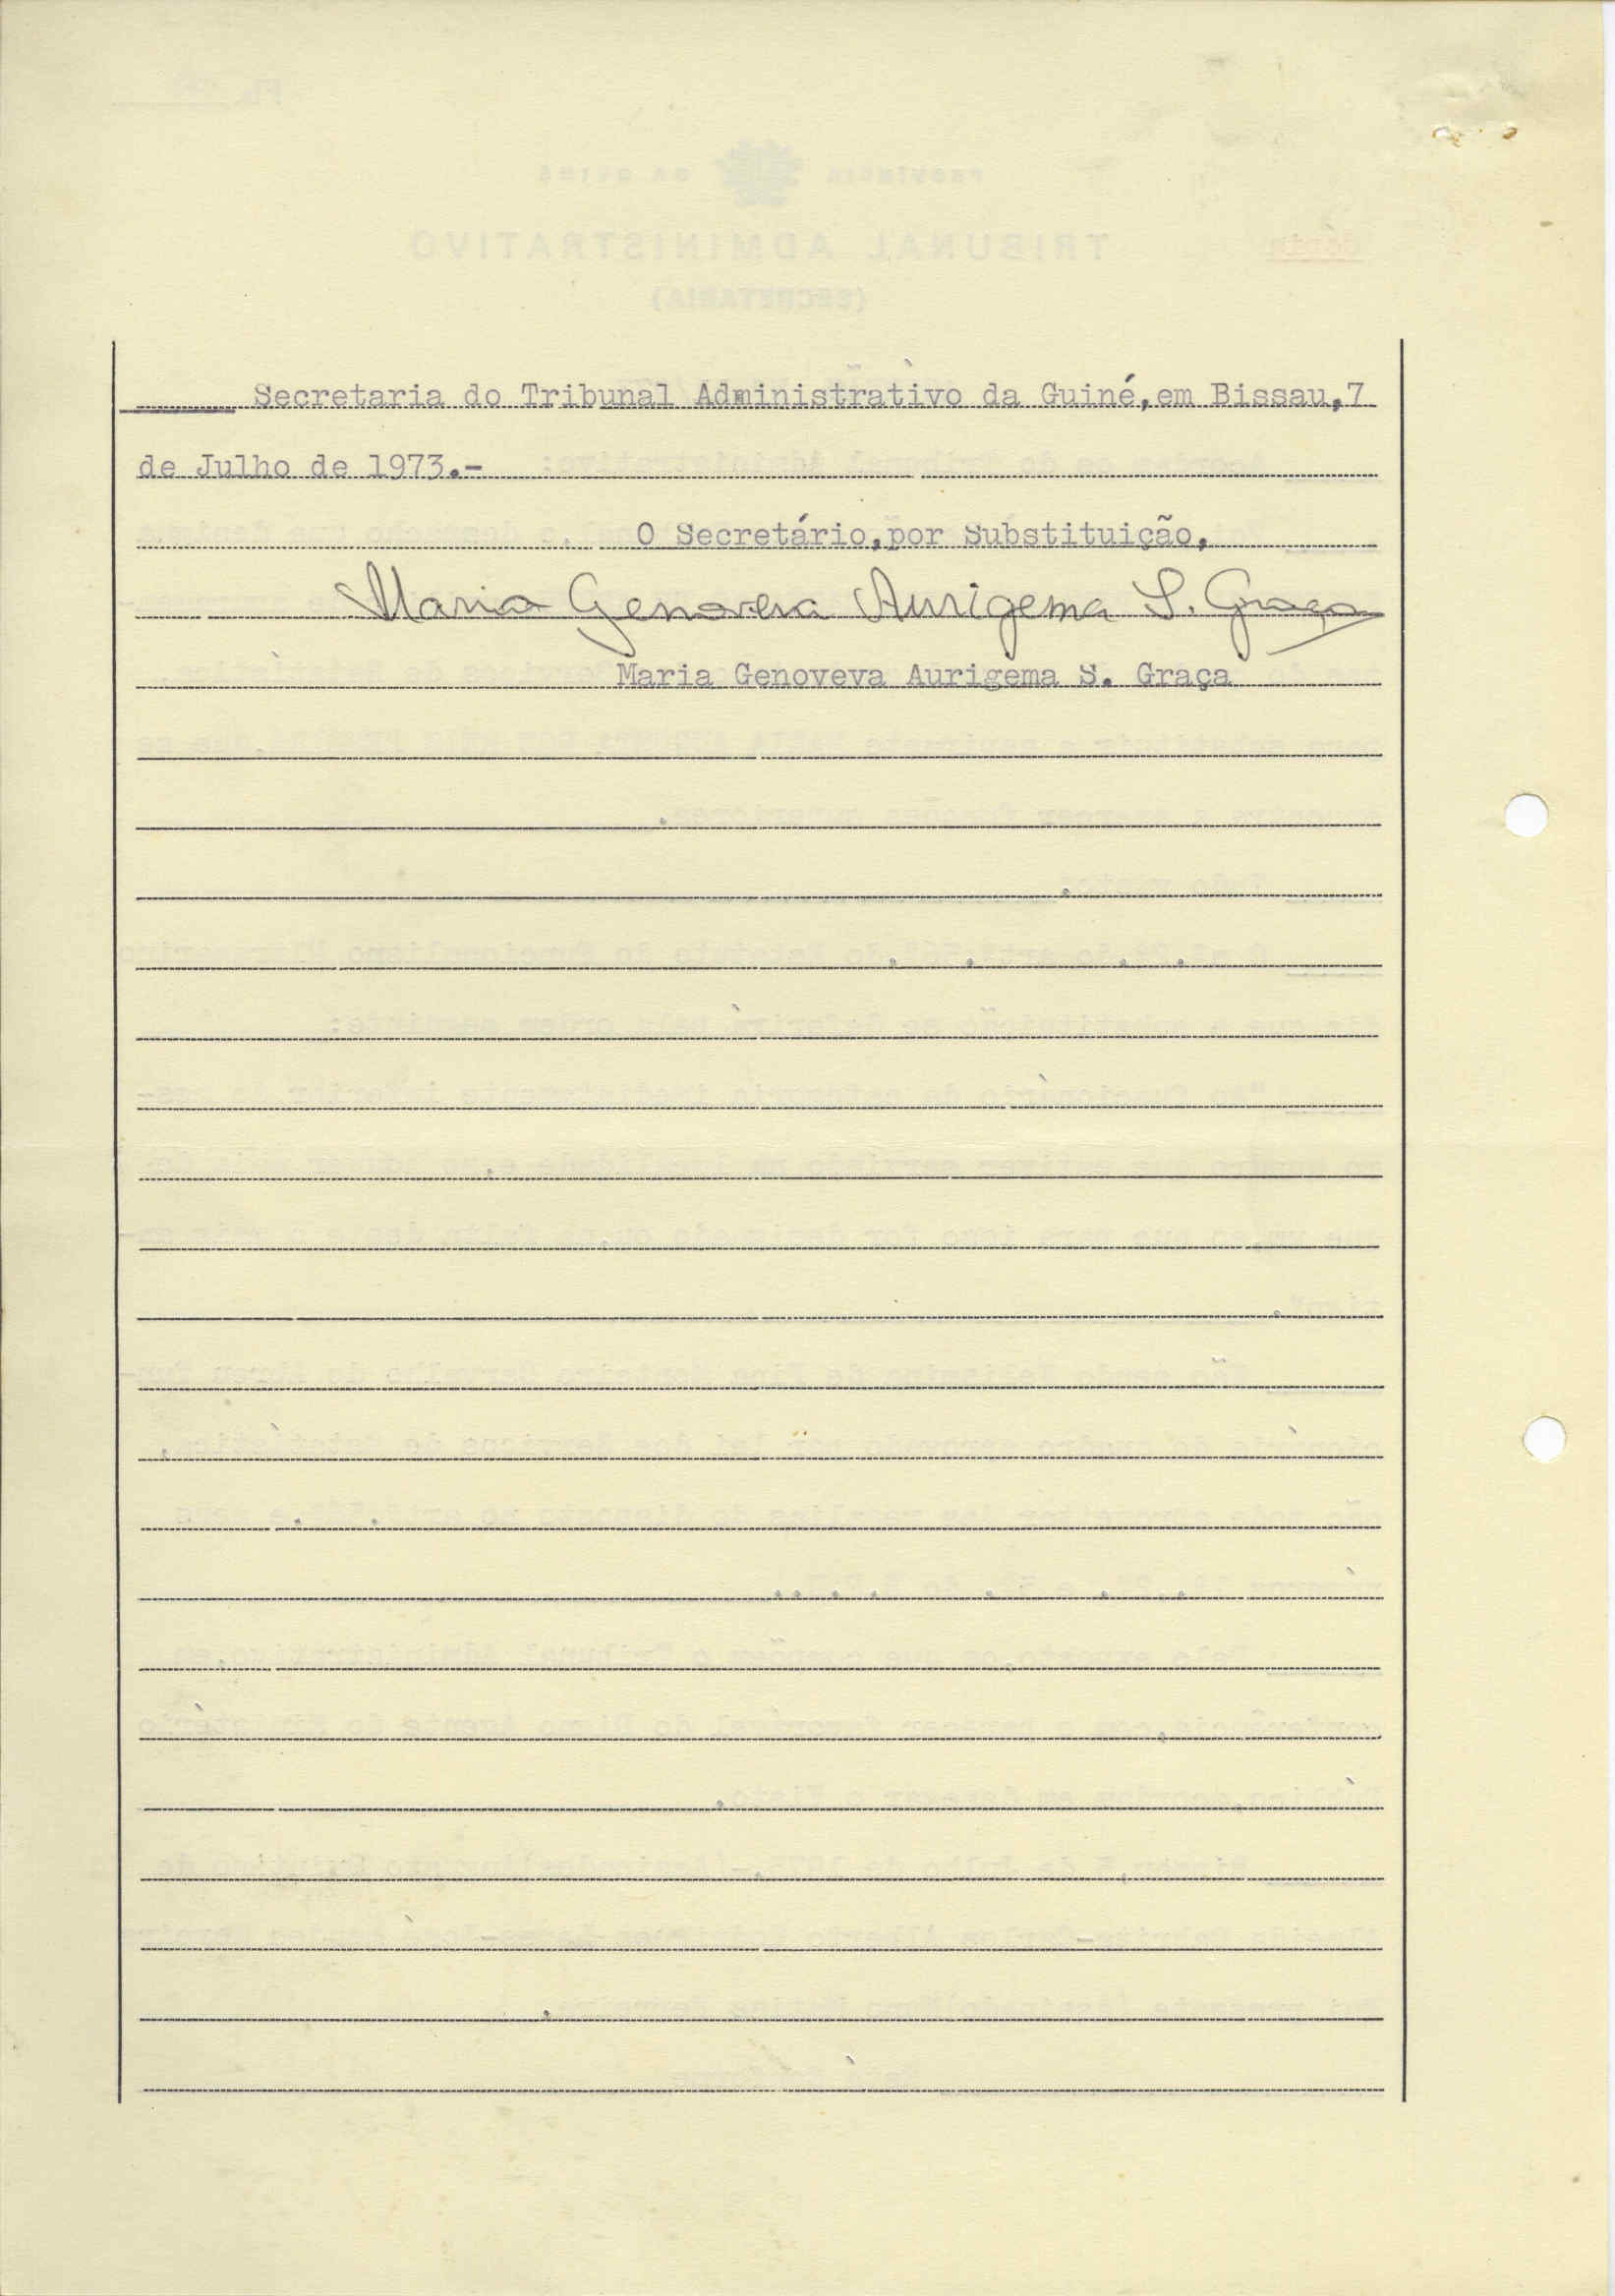 Secretaria do Tribunal Administrativo da Guiné, em Bissau, 7
de Julho de 1973.-
O Secretário, por Substituição,
Maria Genoveva Aurigema S. Graça
Maria Genoveva Aurigema S. Graça